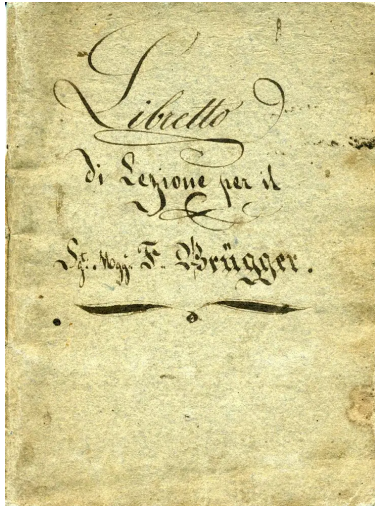 Libretto
di Lezione per il
Sgt. Magg. F. Brügger.